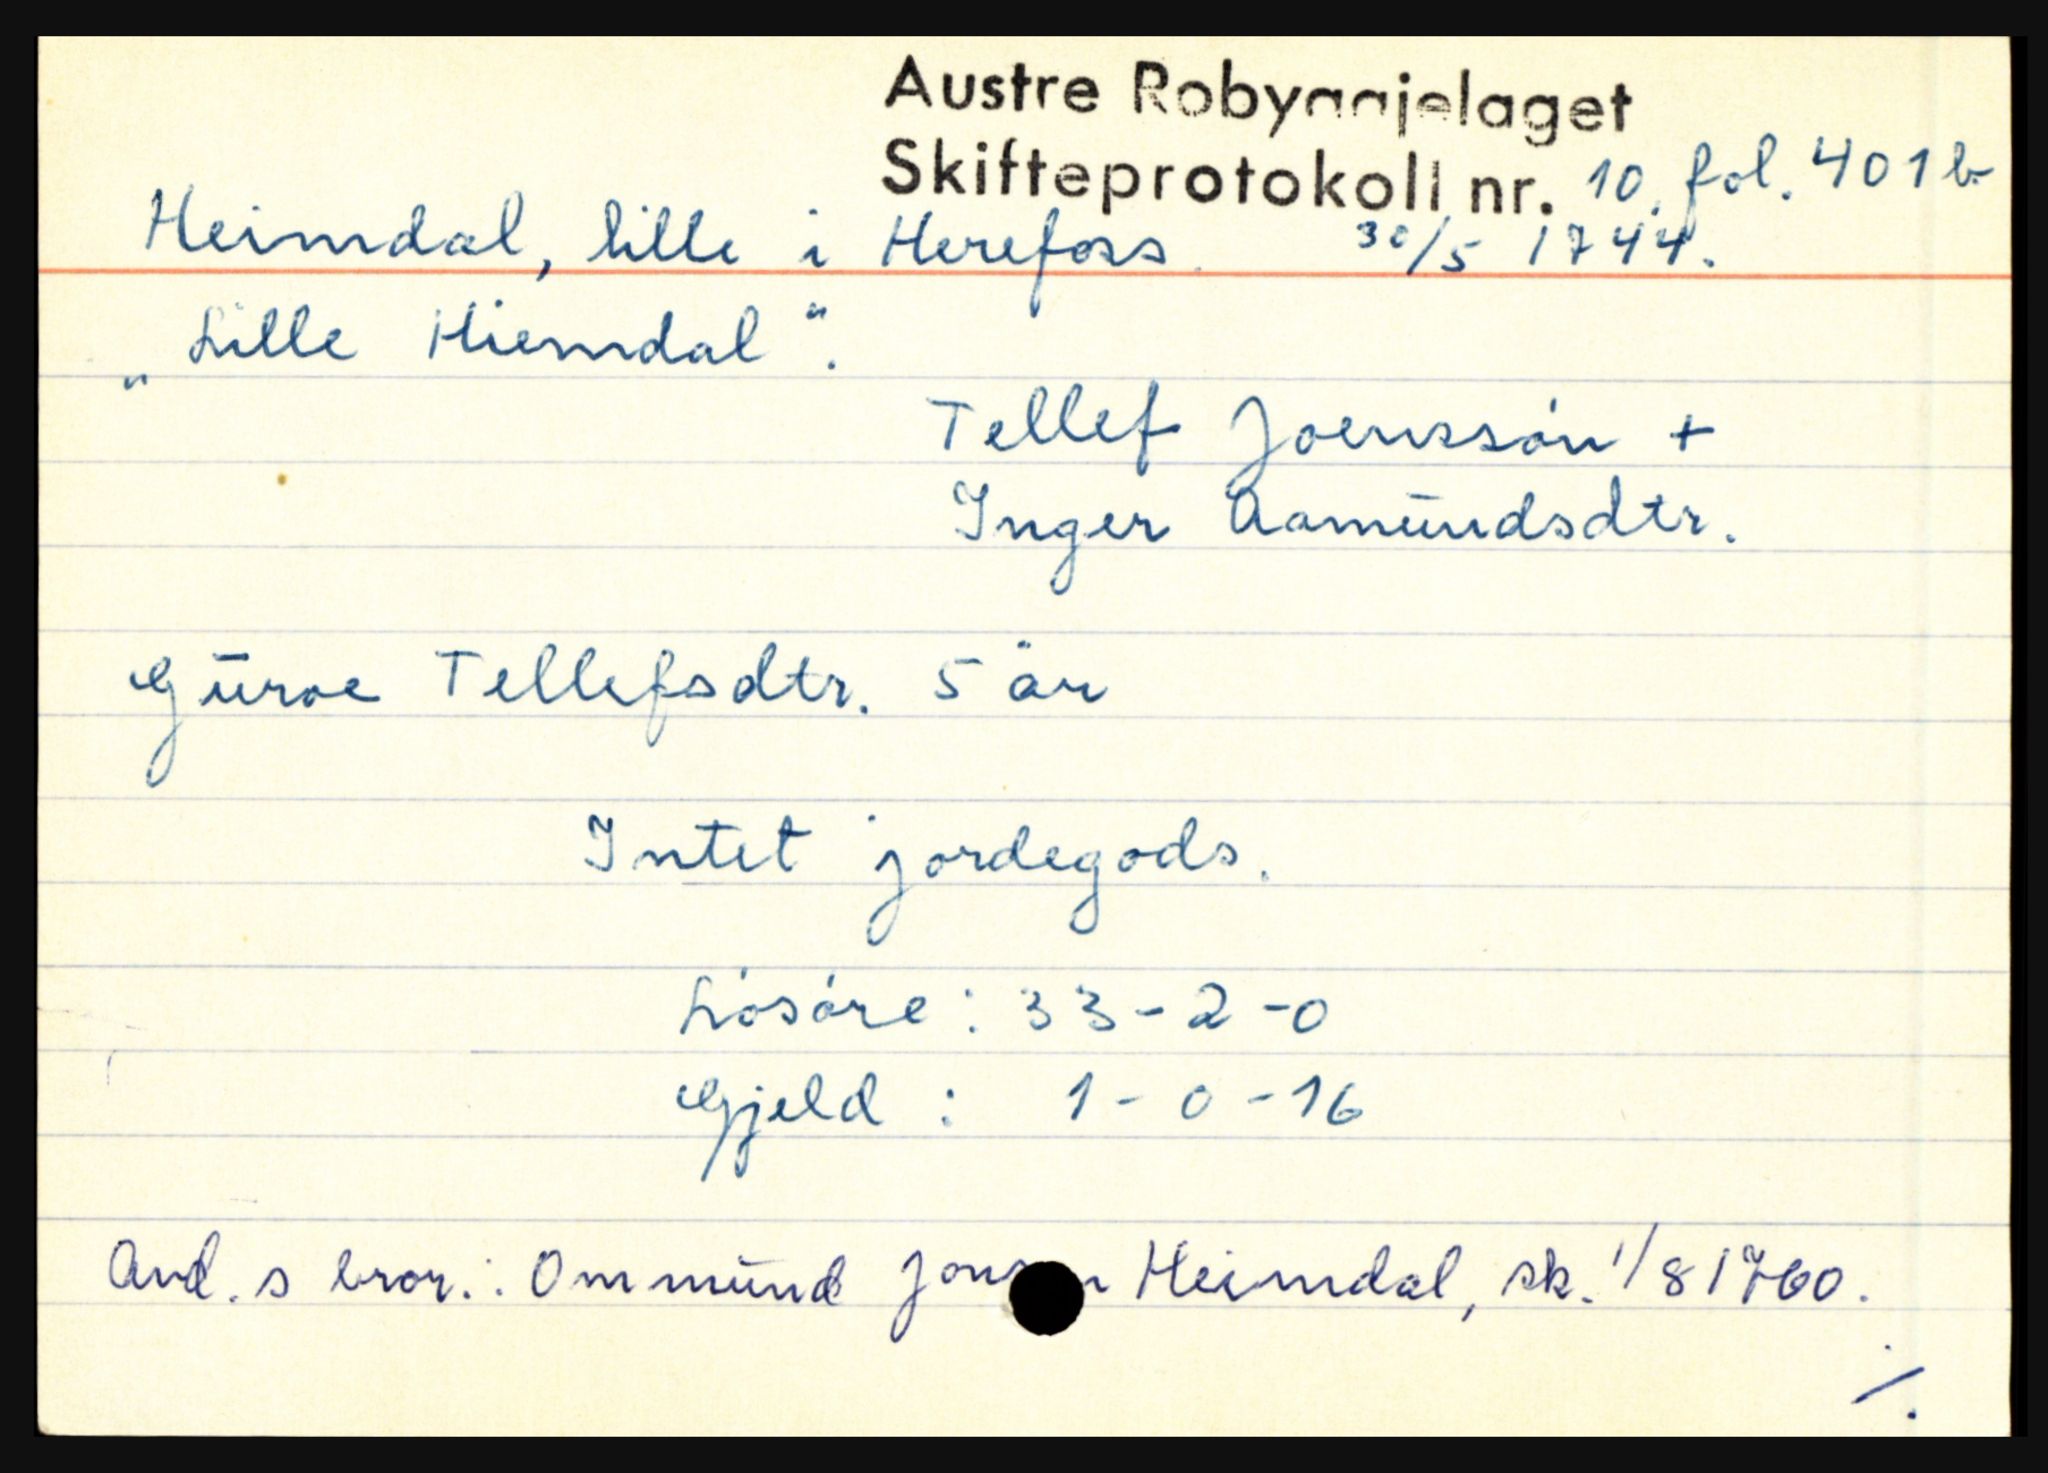 Austre Robyggjelaget
Skifteprotokoll nr. 10, fol. 401 b
Heimdal, lille i Herefoss. 30/5 1744.
„Lille Hiemdal“.
Tellef Joenssón +
Inger Aamundsdtr.
Guroe Tellefsdtr. 5 år
Intet jordegods.
Lósóre : 33-2-0
Gjeld : 1-0-16
Avd. s bror.: Ommund Jonsen Heimdal, sk. 1/8 1760.